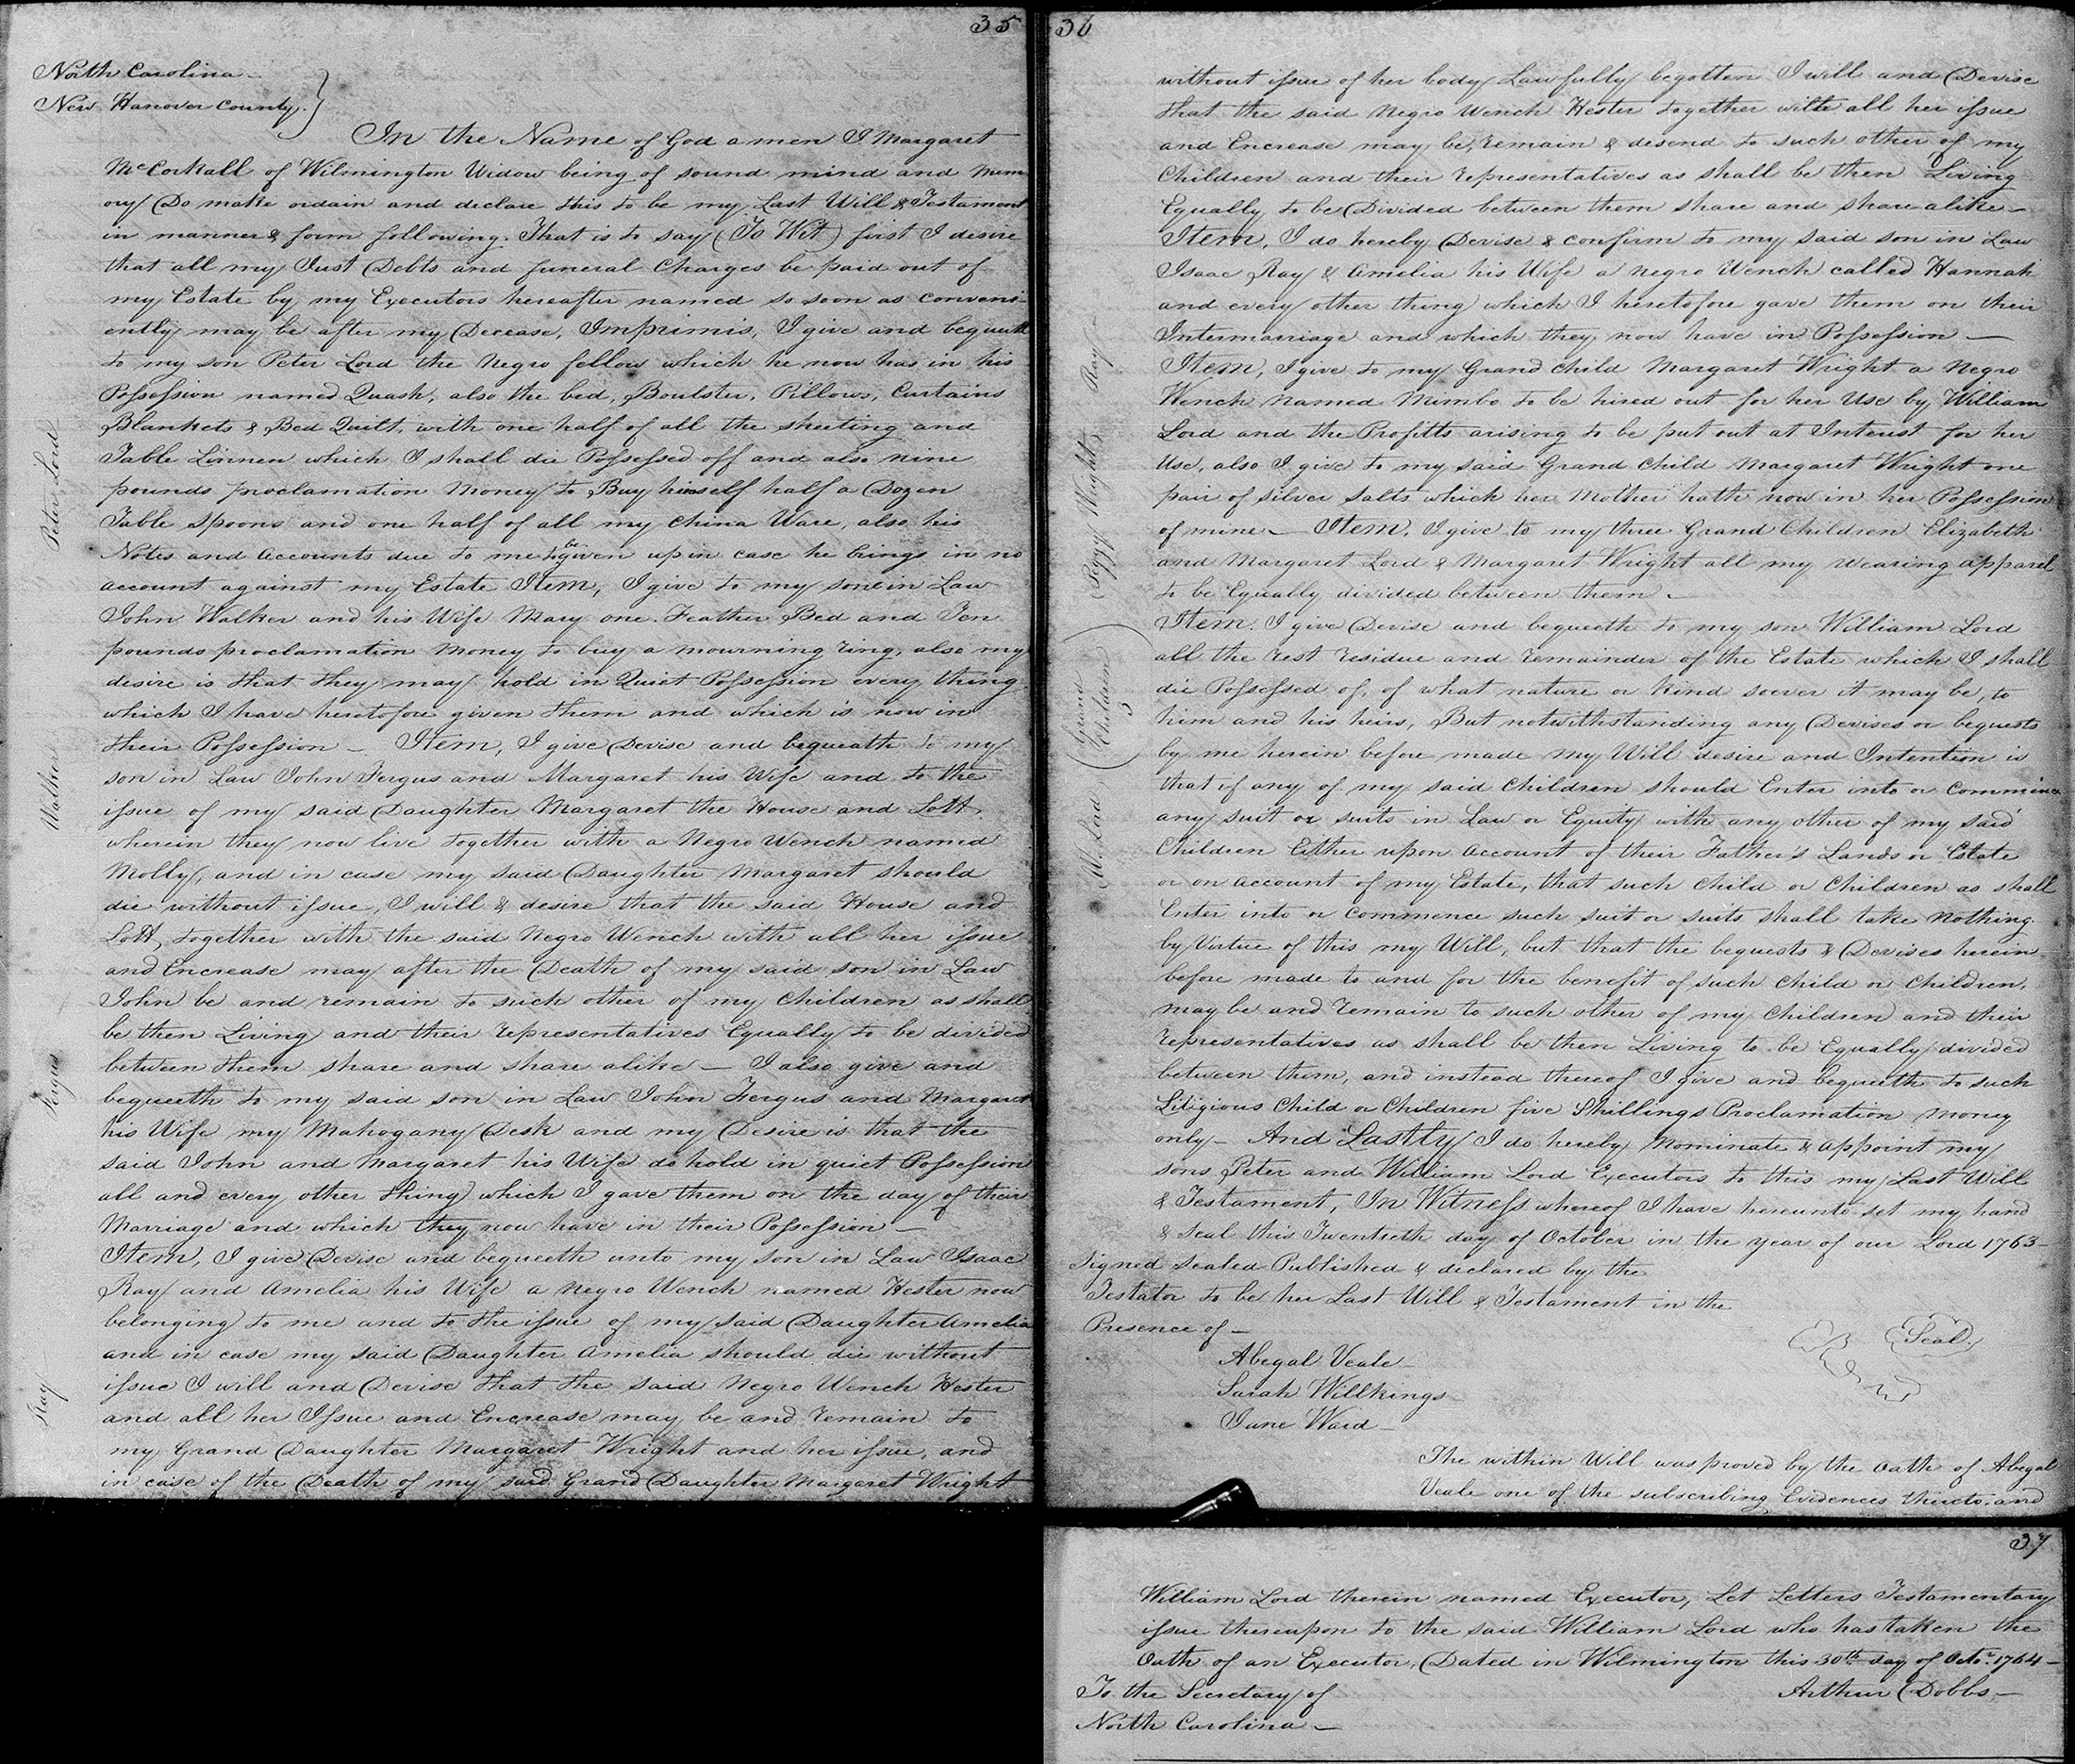 35
North Carolina
New Hanover County.
In the Name of God amen I Margaret
McCorkall of Wilmington Widow being of sound mind and mem
ory Do make ordain and declare this to be my Last Will & Testament
in manner & form following. That is to say (To Wit) first I desire
that all my Just Debts and funeral Charges be paid out of
my Estate by my Executors hereafter named so soon as conveni-
ently may be after my Decease, Imprimis, I give and bequeath
to my son Peter Lord the Negro fellow which he now has in his
Possession named Quash, also the bed, Boulster, Pillows, Curtains
Blankets & Bed Quilt, with one half of all the sheeting and
Table Linnen which I shall die Possessed off and also nine
pounds proclamation Money to Buy himself half a Dozen
Table Spoons and one half of all my China Ware, also his
Notes and accounts due to me to be given up in case he brings in no
account against my Estate Item, I give to my son in Law
John Walker and his Wife Mary one Feather Bed and Ten
pounds proclamation Money to buy a mourning ring, also my
desire is that they may hold in Quiet Possession every thing
which I have heretofore given them and which is now in
their Possession – Item, I give Devise and bequeath to my
son in Law John Fergus and Margaret his Wife and to the
issue of my said Daughter Margaret the House and Lott,
wherein they now live together with a Negro Wench named
Molly, and in case my said Daughter Margaret should
die without issue, I will & desire that the said House and
Lott, together with the said Negro Wench with all her issue
and Encrease may after the Death of my said son in Law
John be and remain to such other of my Children as shall
be then Living and their representatives Equally to be divided
between them share and share alike – I also give and
bequeeth to my said son in Law John Fergus and Margaret
his Wife my Mahogany Desk and my Desire is that the
said John and Margaret his Wife do hold in quiet Possession
all and every other thing which I gave them on the day of their
Marriage and which they now have in their Possession –
Item, I give Devise and bequeeth unto my son in Law Isaac
Ray and Amelia his Wife a Negro Wench named Hester now
belonging to me and to the issue of my said Daughter Amelia
and in case my said Daughter Amelia should die without
issue I will and Devise that the said Negro Wench Hester
and all her Issue and Encrease may be and remain to
my Grand Daughter Margaret Wright and her issue, and
in case of the Death of my said Grand Daughter Margaret Wright
Peter Lord
Walker
Fergus
Ray
36
without issue of her body Lawfully begotten I will and Devise
that the said Negro Wench Hester together with all her issue
and Encrease may be, remain & desend to such other of my
Children and their representatives as shall be then Living
Equally to be Divided between them share and share alike –
Item, I do hereby Devise & confirm to my said son in Law
Isaac Ray & Amelia his Wife a negro Wench called Hannah
and every other thing which I heretofore gave them on their
Intermarriage and which they now have in Possession –
Item, I give to my Grand Child Margaret Wright a Negro
Wench named Mimbo to be hired out for her Use by William
Lord and the Profitts arising to be put out at Interest for her
Use, also I give to my said Grand Child Margaret Wright one
pair of silver Salts which her Mother hath now in her Possession
of mine – Item, I give to my three Grand Children Elizabeth
and Margaret Lord & Margaret Wright all my wearing apparel
to be Equally divided between them –
Item. I give Devise and bequeeth to my son William Lord
all the rest residue and remainder of the Estate which I shall
die Possessed of, of what nature or kind soever it may be, to
him and his heirs, But notwithstanding any Devises or bequests
by me herein before made my Will desire and Intention is
that if any of my said Children should Enter into or commence
any suit or suits in Law or Equity with any other of my said
Children Either upon account of their Father's Lands or Estate
or on account of my Estate, that such Child or Children as shall
Enter into or commence such suit or suits shall take nothing
by Virtue of this my Will, but that the bequests & Devises herein
before made to and for the benefit of such Child or Children,
may be and remain to such other of my Children and their
representatives as shall be then Living to be Equally divided
between them, and instead thereof I give and bequeeth to such
Litigious Child or Children five Shillings Proclamation Money
only – And Lastly I do hereby nominate & appoint my
sons Peter and William Lord Executors to this my Last Will
& Testament, In Witness whereof I have hereunto set my hand
& seal this Twentieth day of October in the year of our Lord 1763 –
Signed Sealed Published & declared by the
Testator to be her Last Will & Testament in the
Presence of –
Seal
Abegal Veale
Sarah Willkings
Jane Ward –
The within Will was proved by the Oath of Abegal
Veale one of the subscribing Evidences thereto, and
Ray
Peggy Wright
Grand
Children
W. Lord
37
William Lord therein named Executor, Let Letters Testamentary
issue thereupon to the said William Lord who has taken the
Oath of an Executor, Dated in Wilmington this 30th day of Octo. 1764 –
To the Secretary of
Arthur Dobbs –
North Carolina –